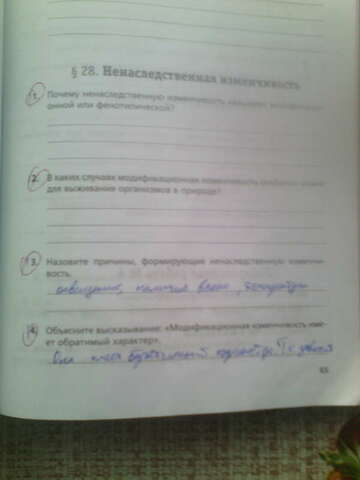 § 28. Ненаследственная изменчивость
1. Почему ненаследственную изменчивость называют модификаци-
онной или фенотипической?
2. В каких случаях модификационная изменчивость особенно важна
для выживания организмов в природе?
3. Назовите причины, формирующие ненаследственную изменчи-
вость.
освещение, наличие влаги, температура
4. Объясните высказывание: «Модификационная изменчивость име-
ет обратимый характер».
Она имеет
65